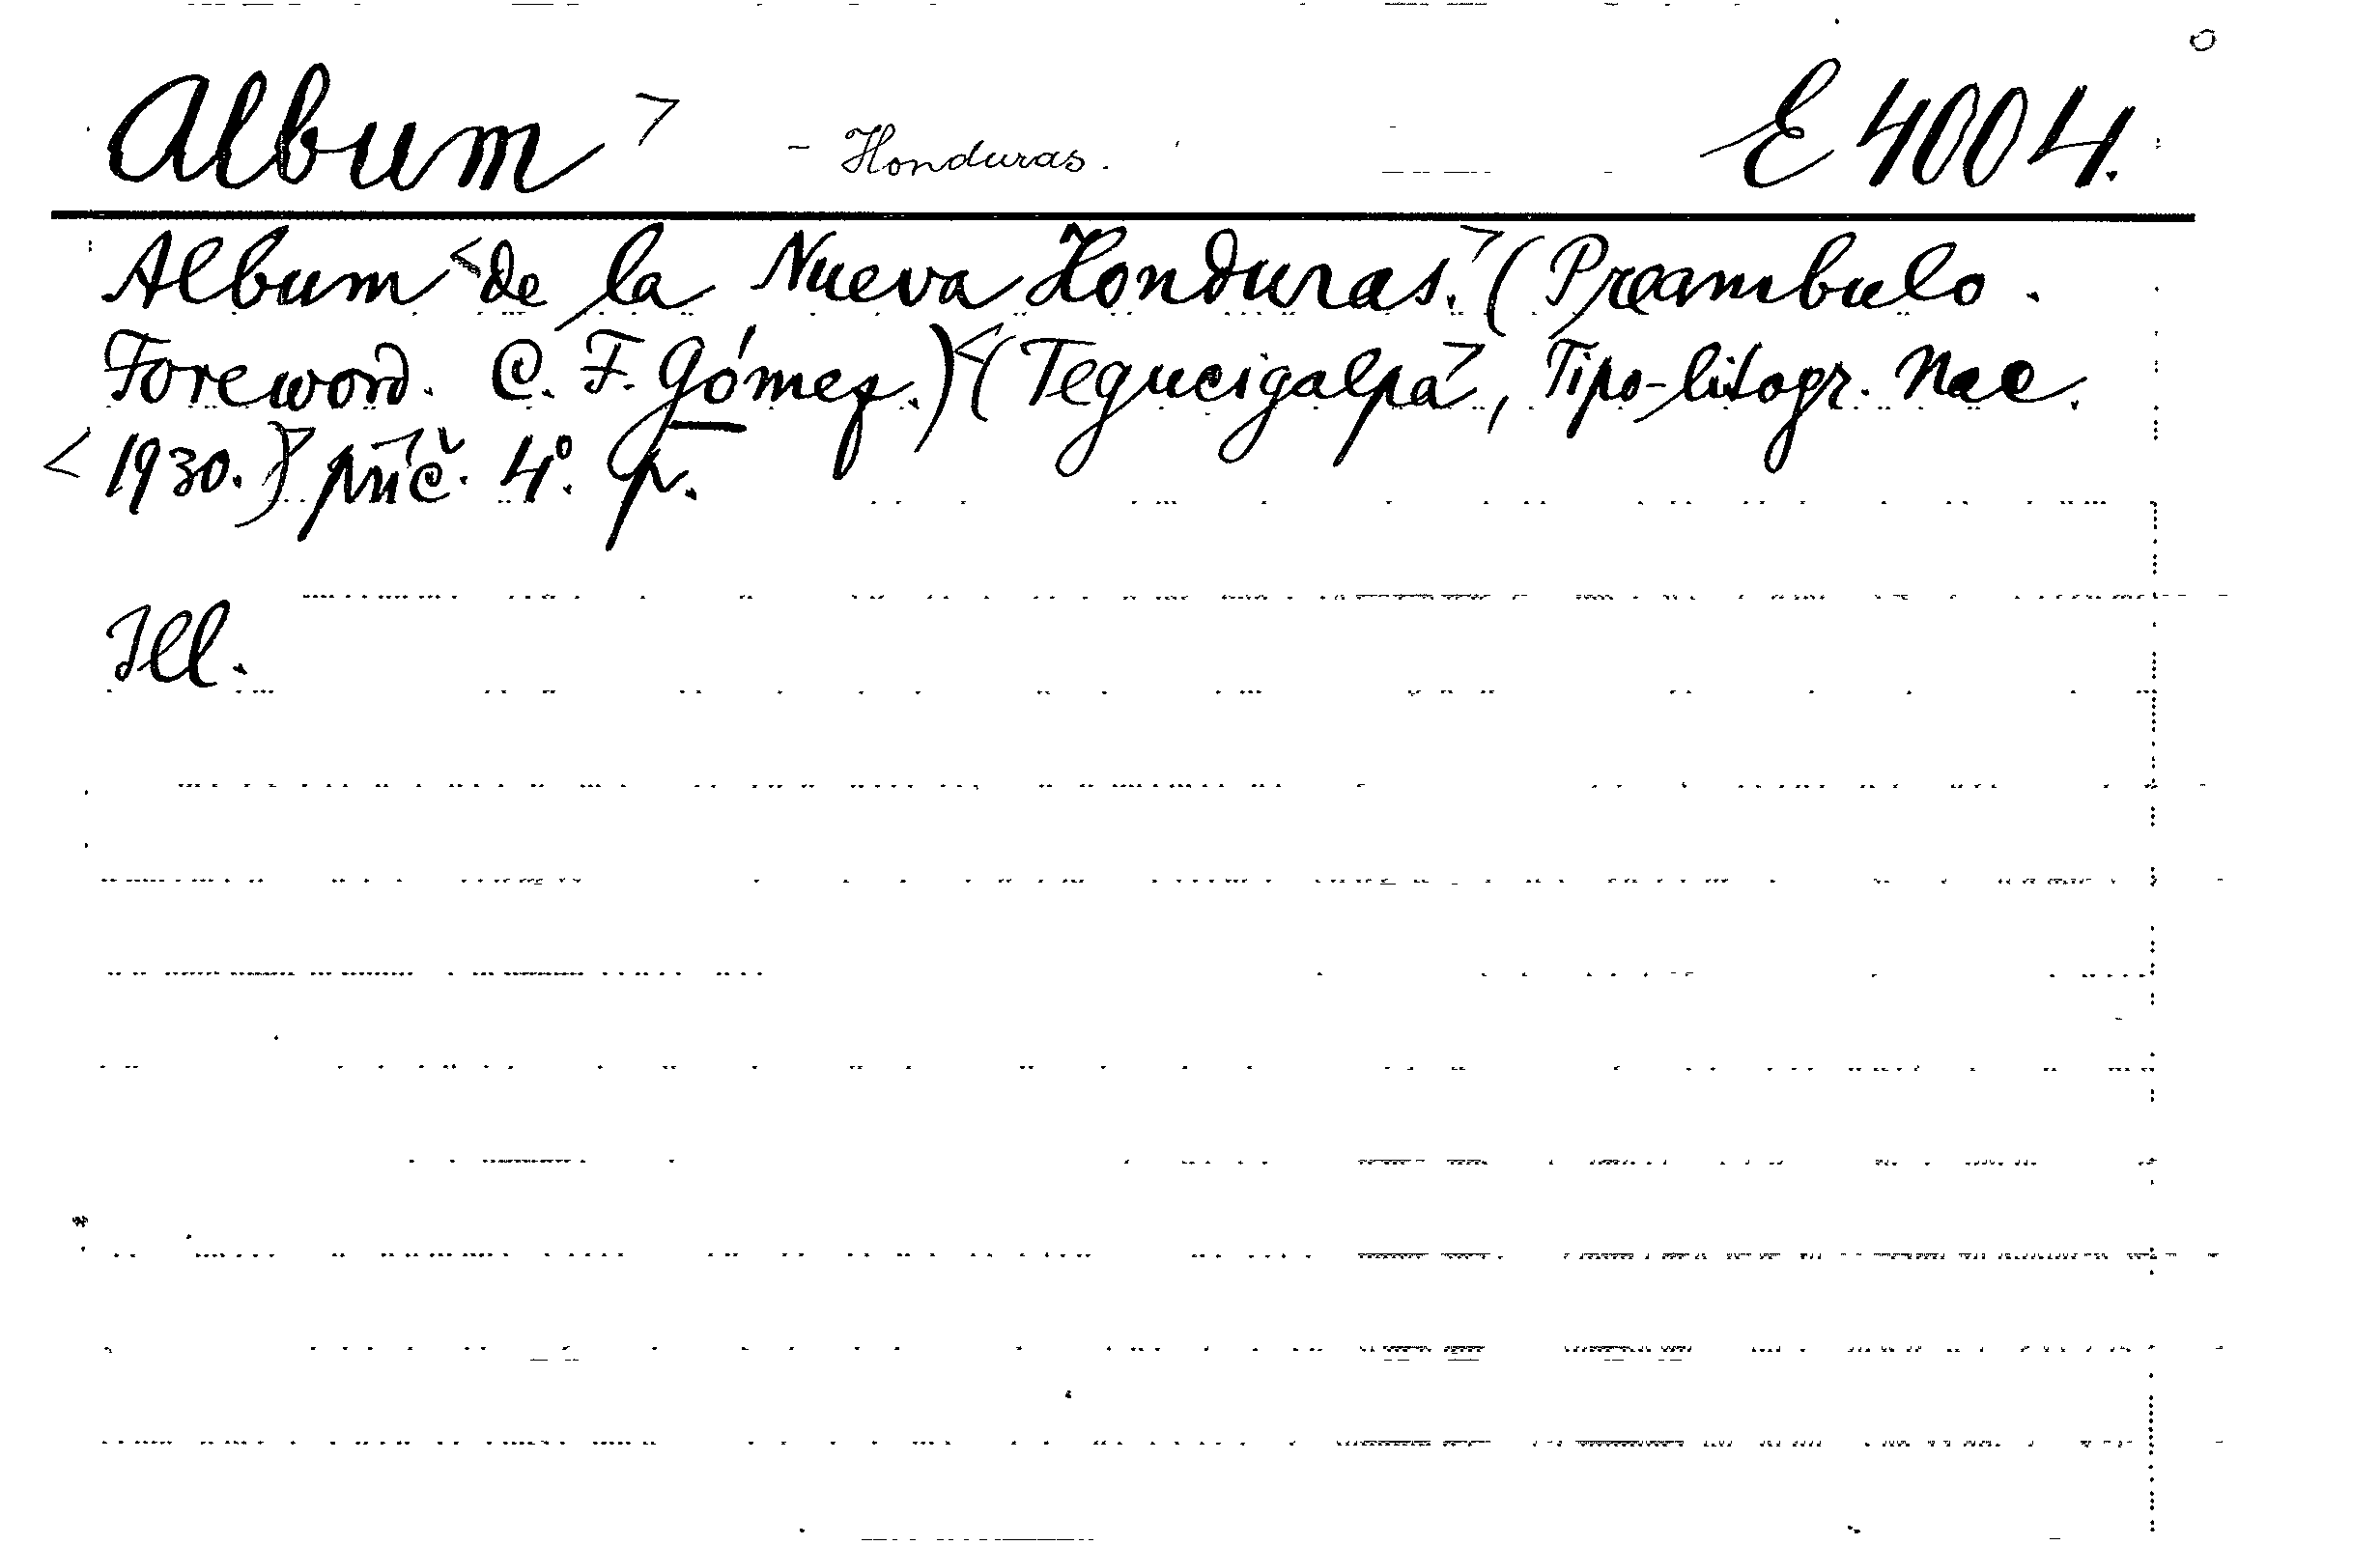 Album - Honduras. E 4004.
Album de la Nueva Honduras. (Preambulo.
Foreword. C. F. Gómez.) (Tegucigalpa, Tipo-litogr. Nac.
1930.) 4°.
Ill.